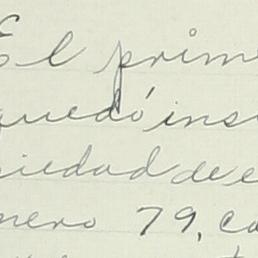 El prim
quedó ins
iedad de e
mero 79, co